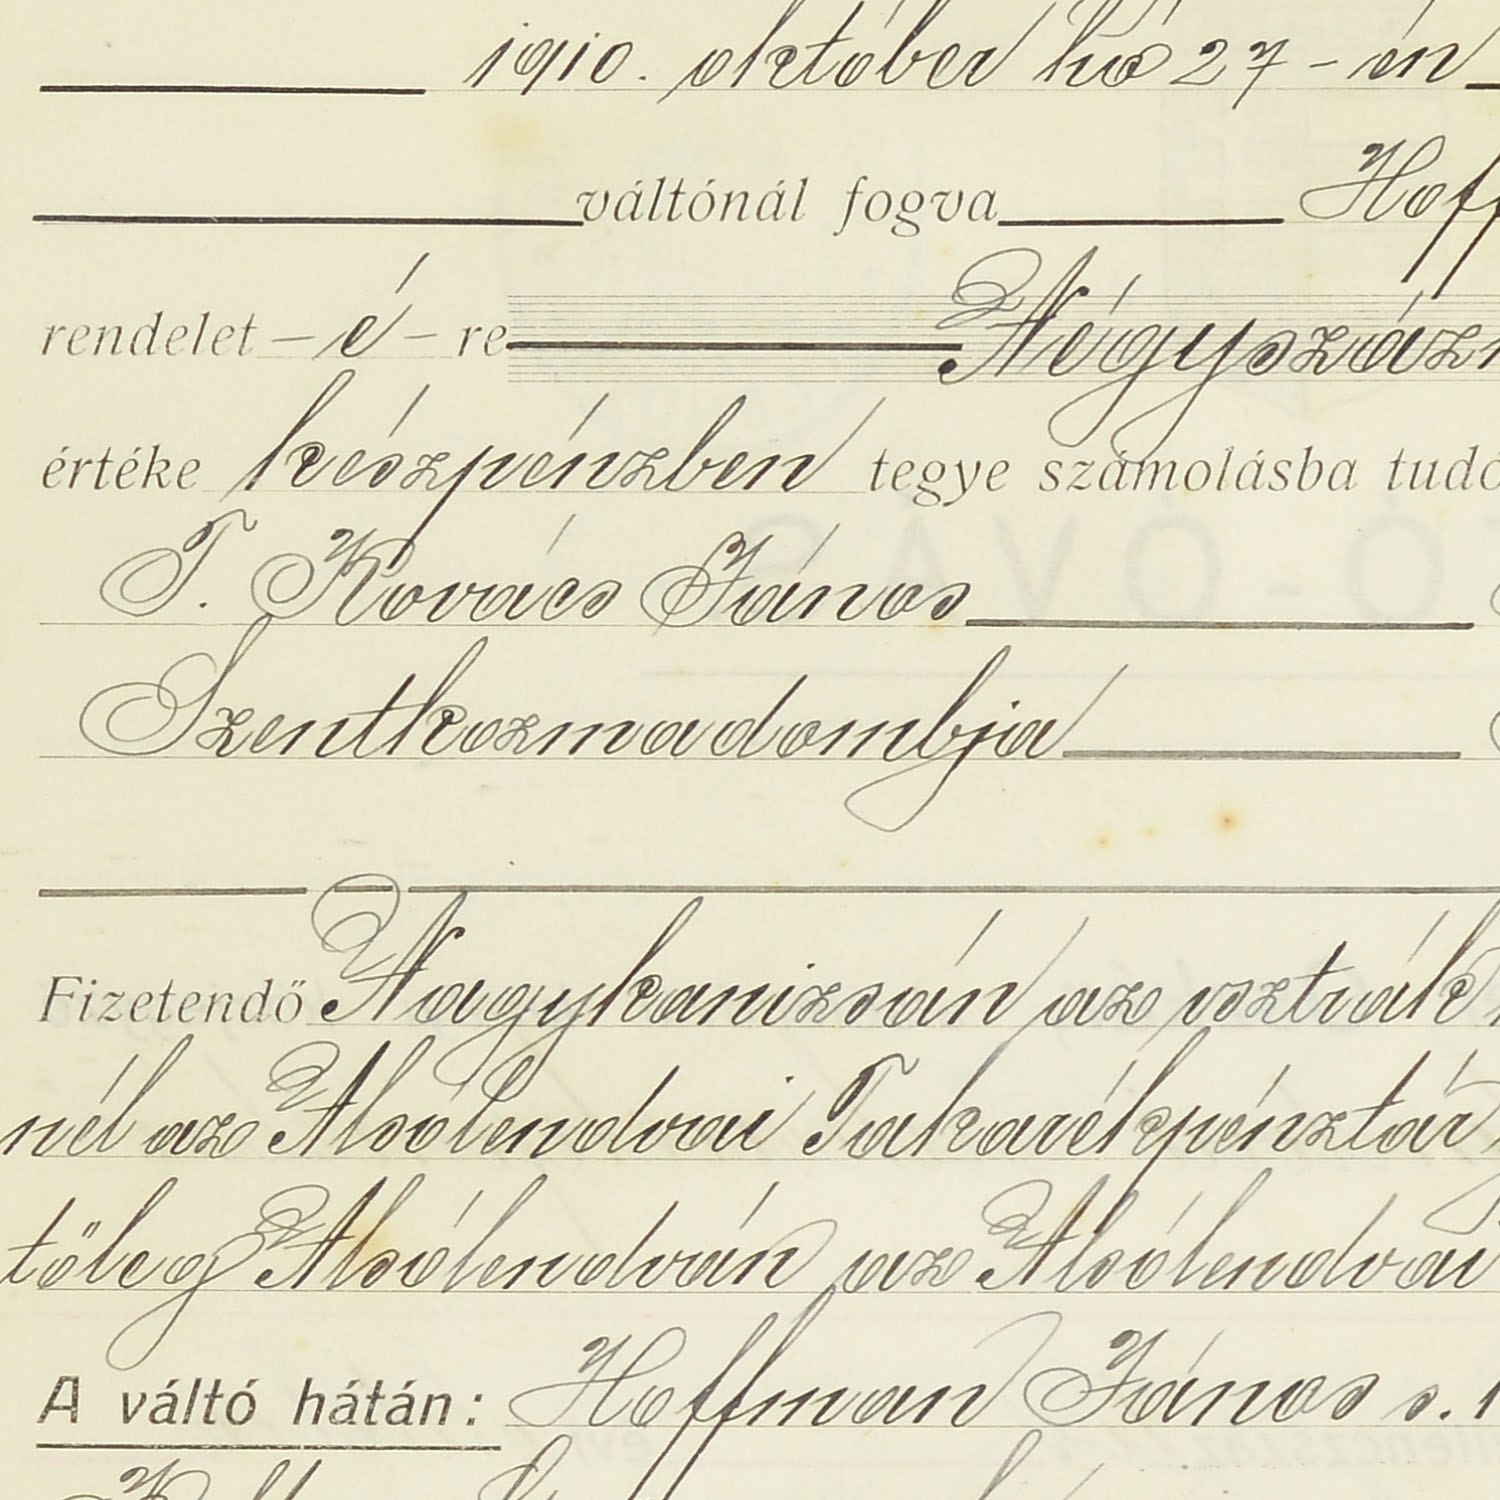 1910. október hó 27-én
váltónál fogva Hoff
rendelet - é - re Négyszáz
értéke készpénzben tegye számolásba tudó
T. Kovács János
Szentkozmadombja
Fizetendő Nagykanizsán az osztrák
nél az Alsólendvai Takarékpénztár
tőleg Alsólendván az Alsólendvai
A váltó hátán: Hoffman János s.